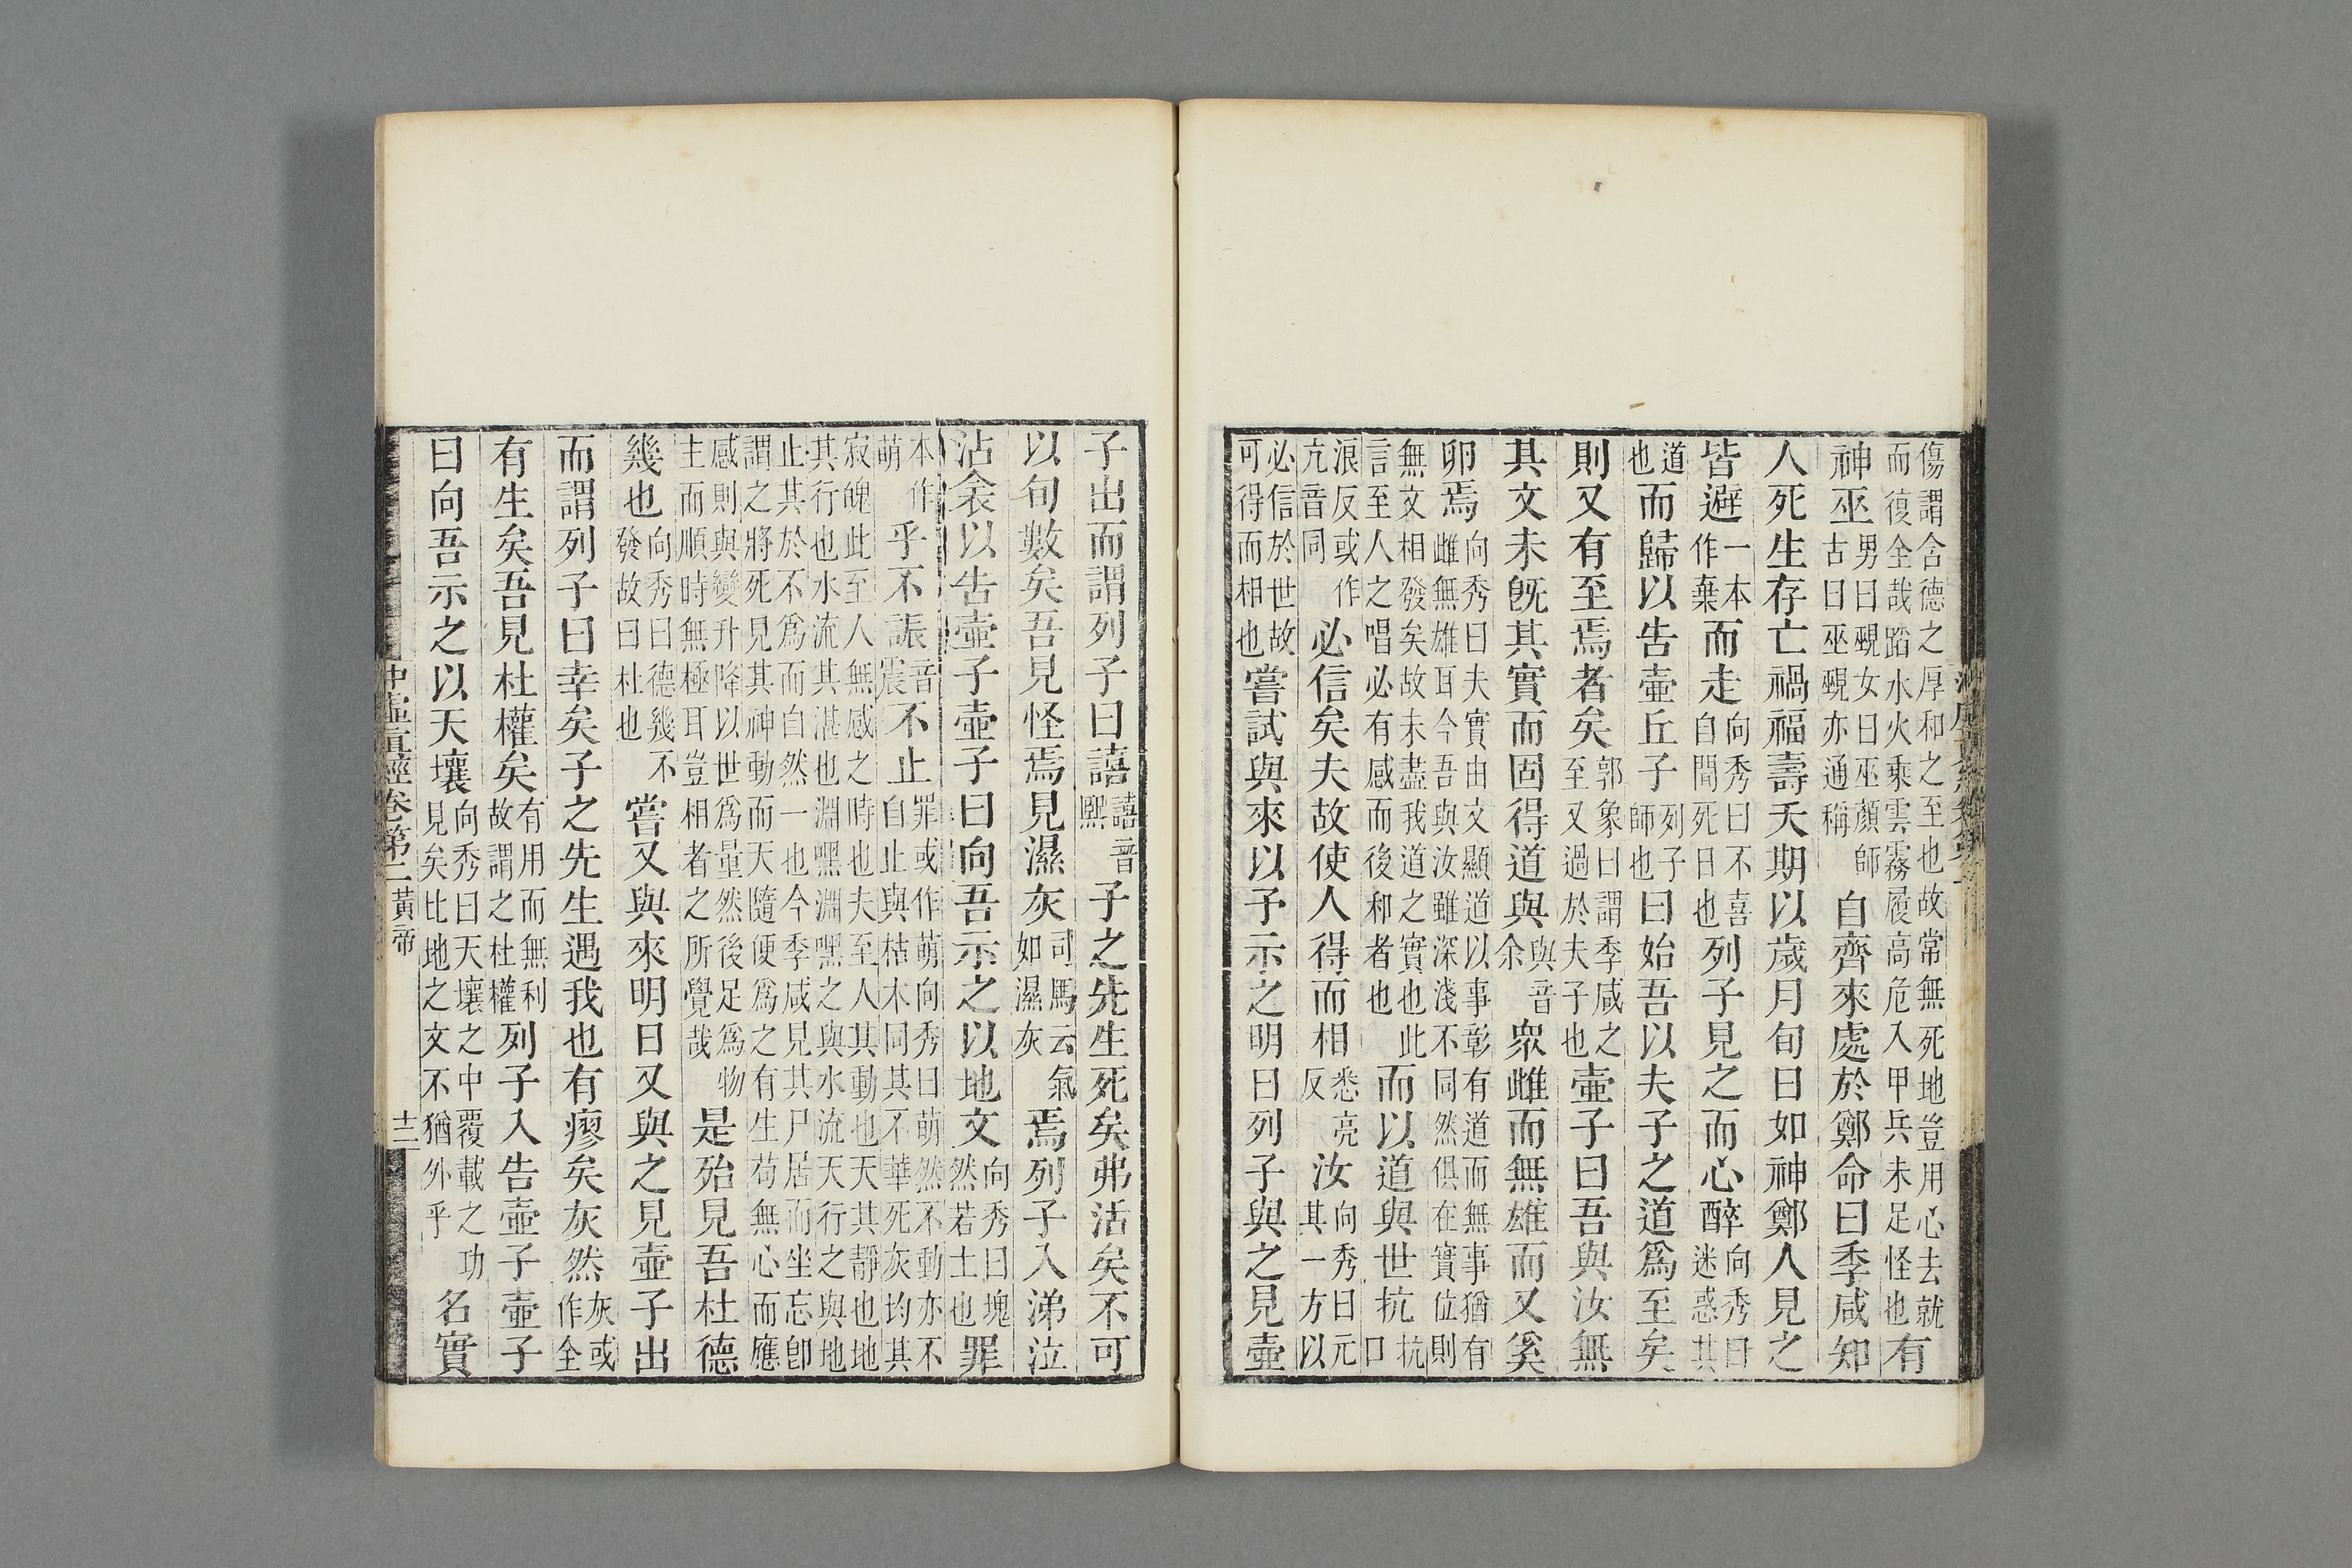 傷謂含德之厚和之至也故常無死地豈用心去就
而復全哉蹈水火乘雲霧履高危入甲兵未足怪也有
神巫男曰覡女曰巫顏師
古曰巫覡亦通稱自齊來處於鄭命曰季咸知
人死生存亡禍福壽夭期以歲月旬日如神鄭人見之
皆避一本
作棄而走向秀曰不喜
自聞死日也列子見之而心醉向秀曰
迷惑其
道
也而歸以告壷丘子列子
師也曰始吾以夫子之道爲至矣
則又有至焉者矣郭象曰謂季咸之
至又過於夫子也壷子曰吾與汝無
其文未旣其實而固得道與與音
余眾雌而無雄而又奚
卵焉向秀曰夫實由文顯道以事彰有道而無事猶有
雌無雄耳今吾與汝雖深淺不同然俱在實位則
無文相發矣故未盡我道之實也此
言至人之唱必有感而後和者也而以道與世抗抗
口
浪反或作
亢音同必信矣夫故使人得而相悉亮
反汝向秀曰元
其一方以
必信於世故
可得而相也嘗試與來以予示之明日列子與之見壷
子出而謂列子曰譆譆音
熙子之先生死矣弗活矣不可
以旬數矣吾見怪焉見濕灰司馬云氣
如濕灰焉列子入涕泣
沾衾以告壷子壷子曰向吾示之以地文向秀曰塊
然若土也罪
本作
萌乎不誫音
震不止罪或作萌向秀曰萌然不動亦不
自止與枯木同其不華死灰均其
寂魄此至人無感之時也夫至人其動也天其靜也地
其行也水流其湛也淵嘿淵嘿之與水流天行之與地
止其於不爲而自然一也今季咸見其尸居而坐忘卽
謂之將死見其神動而天隨便爲之有生苟無心而應
感則與變升降以世爲量然後足爲物
主而順時無極耳豈相者之所覺哉是殆見吾杜德
幾也向秀曰德幾不
發故曰杜也嘗又與來明日又與之見壷子出
而謂列子曰幸矣子之先生遇我也有瘳矣灰然灰或
作全
有生矣吾見杜權矣有用而無利
故謂之杜權列子入告壷子壷子
曰向吾示之以天壤向秀曰天壤之中覆載之功
見矣比地之文不猶外乎名實
沖虛眞經卷第二黃帝
十二